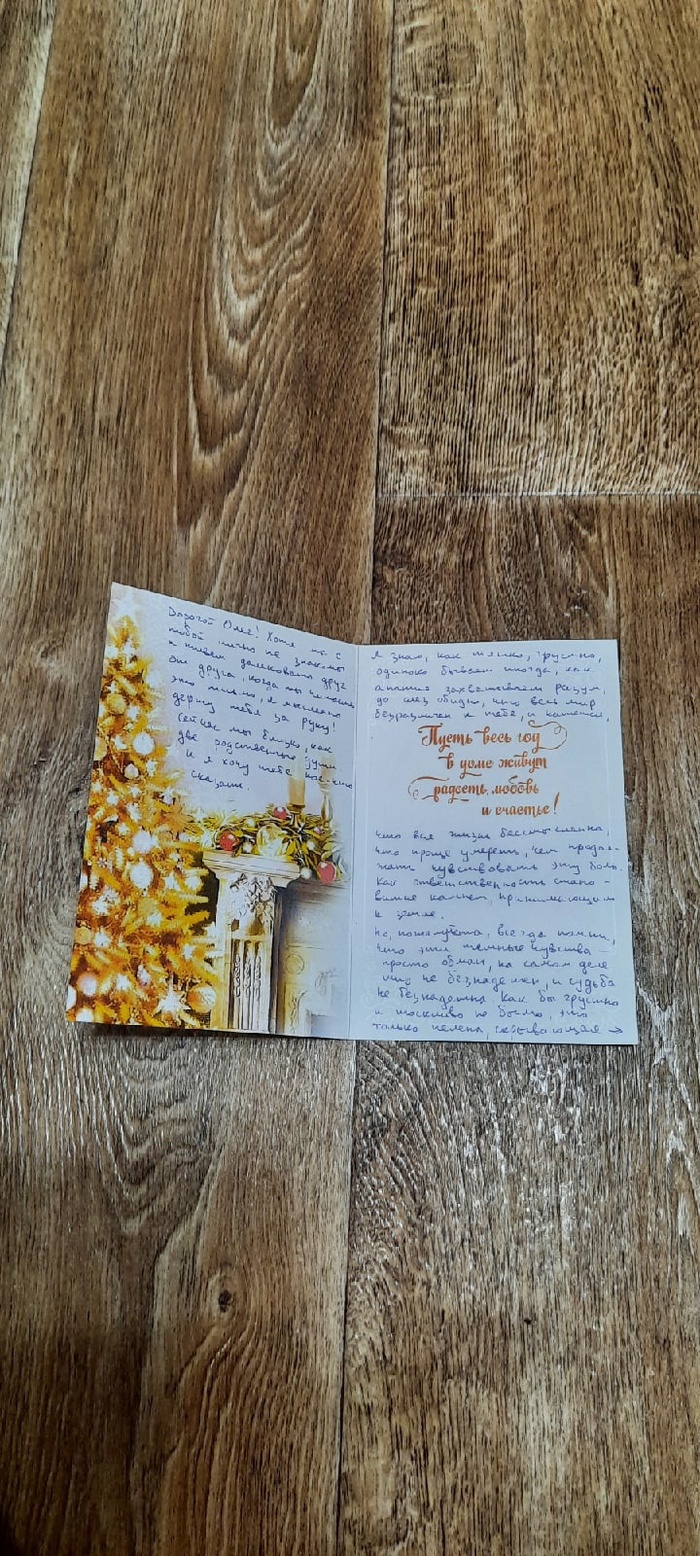 Дорогой Олег! Хотя мы с
тобой лично не знакомы
и живем далековато друг
от друга, когда ты читаешь
это письмо, я мысленно
держу тебя за руку!
Сейчас мы близки, как
две родственные души
и я хочу тебе кое-что
сказать.
Я знаю, как тяжко, грустно,
одиноко бывает иногда, как
апатия захватывает разум,
до слез обидно, что весь мир
безразличен к тебе, и кажется,
Пусть весь год
в доме живут
радость, любовь
и счастье!
что вся жизнь бессмысленна,
что проще умереть, чем продол-
жать чувствовать эту боль.
Как ответственность стано-
вится камнем, прижимающим
к земле.
Но, пожалуйста, всегда помни,
что эти темные чувства -
просто обман, на самом деле
мир не безнадежен, и судьба
не безнадежна. Как бы грустно
и тоскливо не было, это
только пелена, скрывающая →